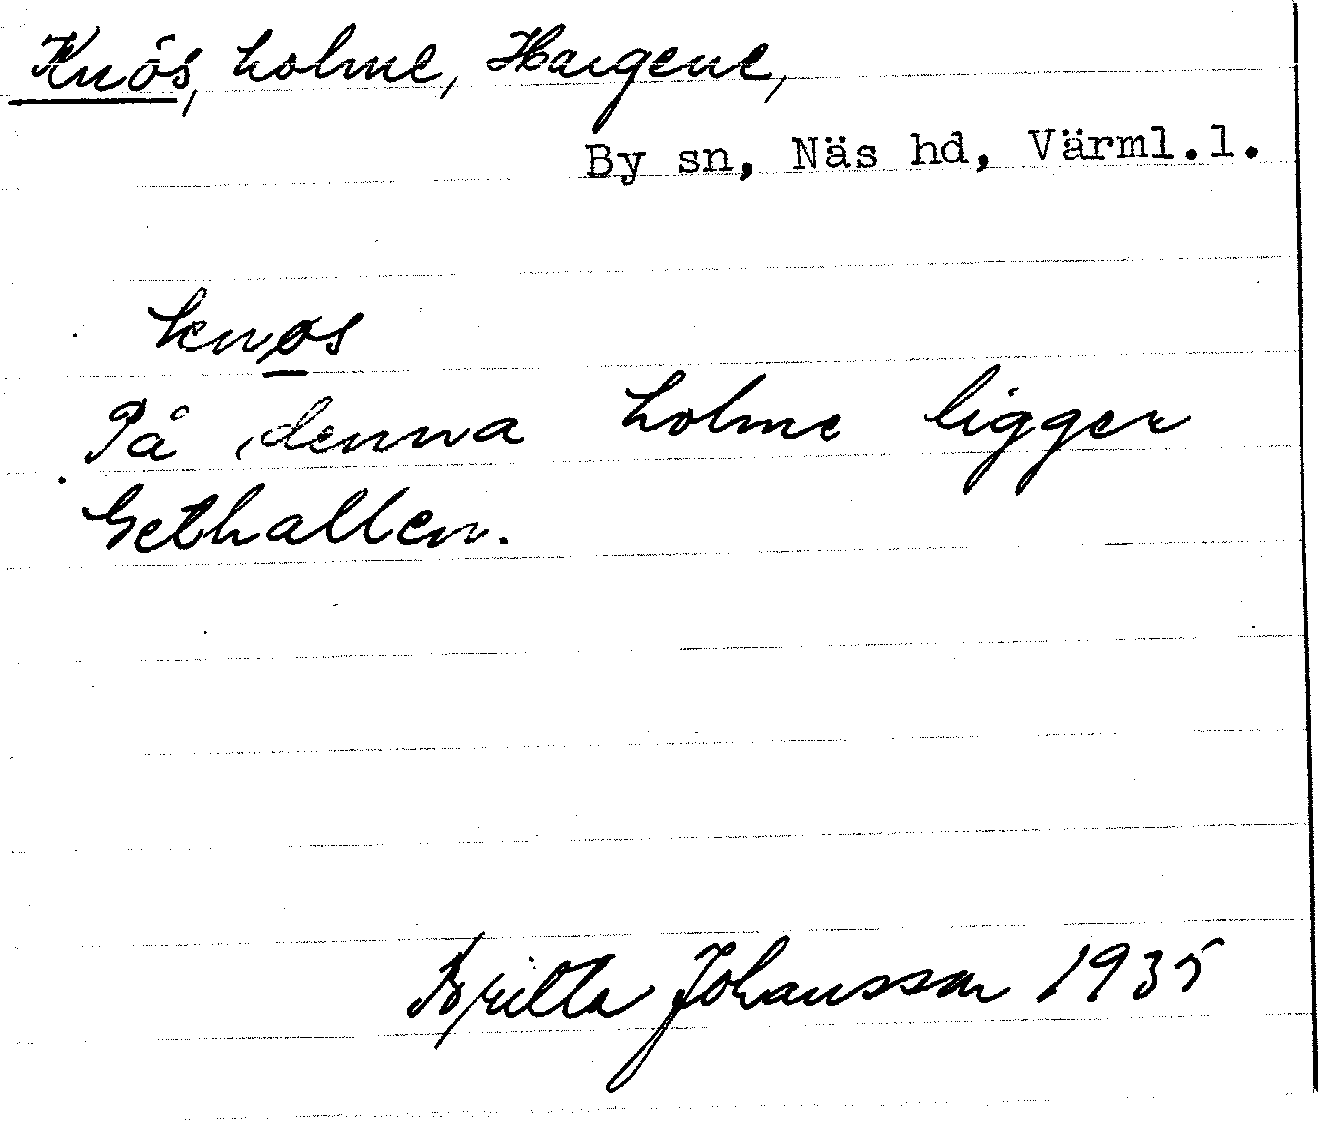 Knös, holme, Hargene,
By sn, Näs hd, Värml.l.
knøs
På denna holme ligger
Gethallen.
Britta Johansson 1935